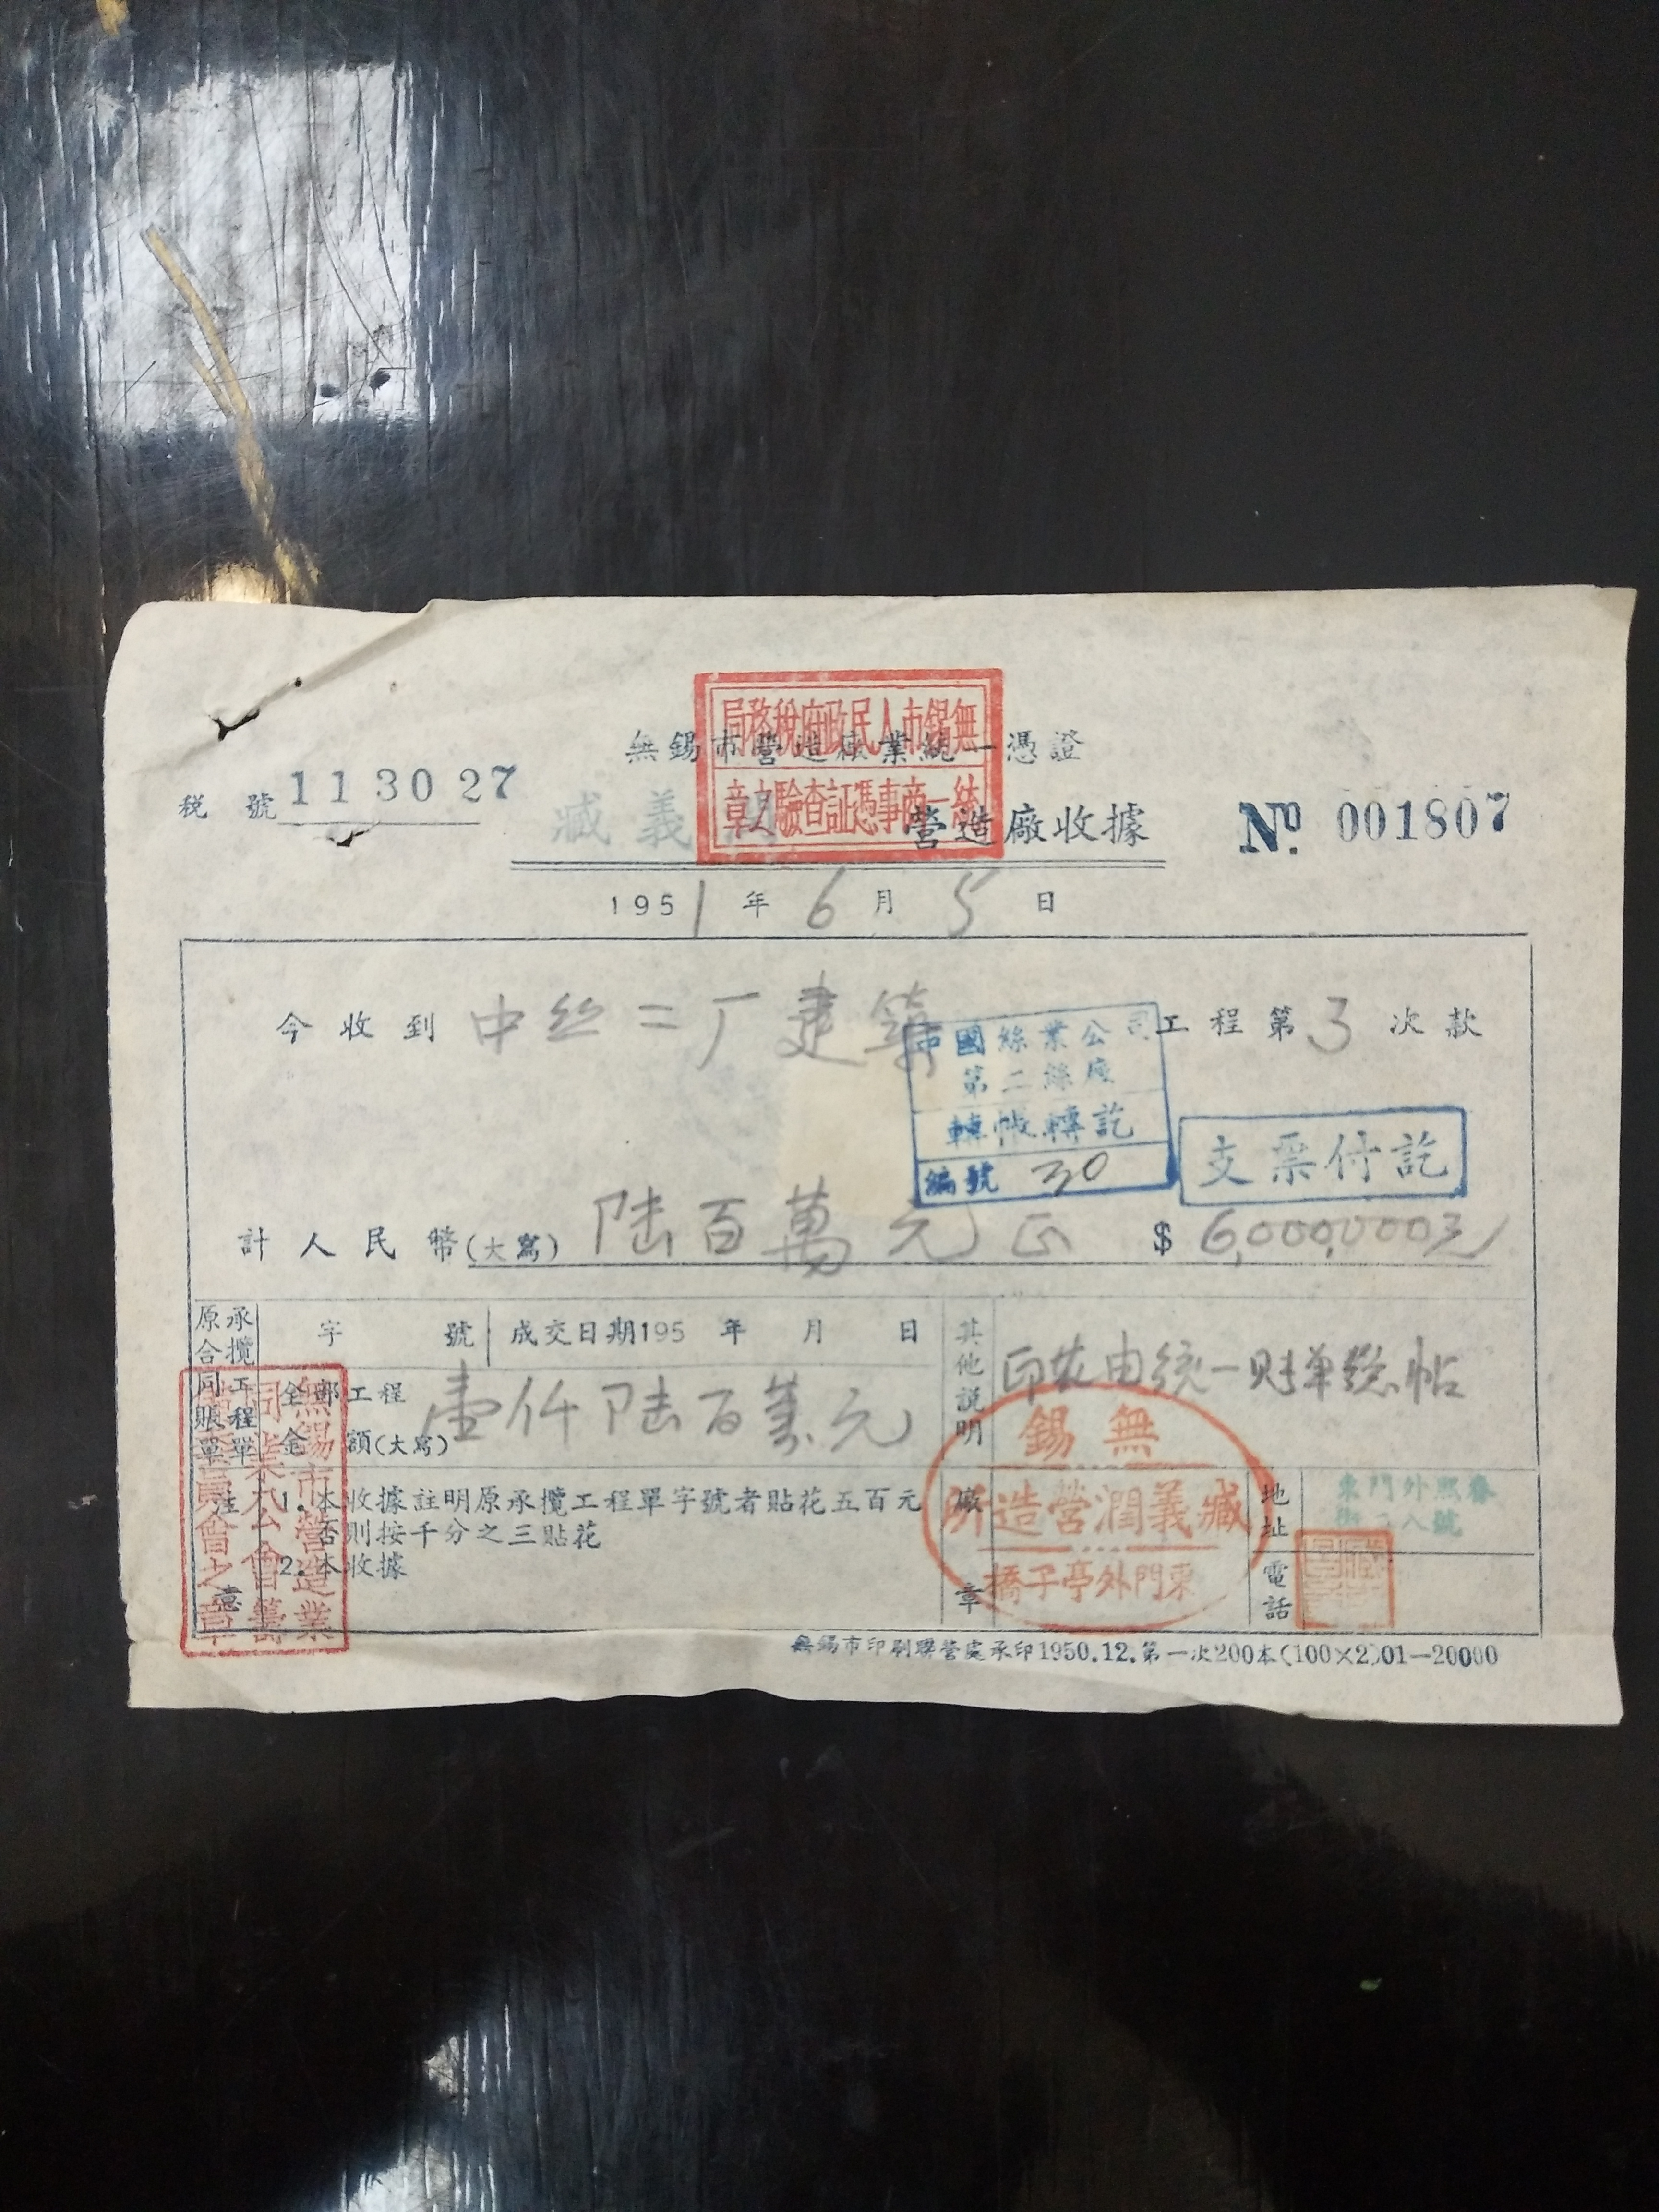 無錫市人民政府稅務局
統一商事憑証查驗之章
無錫市營造廠業統一憑證
稅號 113027
臧義潤 營造廠收據
№ 001807
1951年6月5日
今收到 中丝二厂建築 工程第3次款
中國絲業公司
第二絲廠
轉帳轉訖
編號 30
支票付訖
計人民幣(大寫) 陆百萬元正 $ 6,000,000元
原合同賬單
承攬工程單
字 號 成交日期195 年 月 日
全部工程
金額(大寫) 壹仟陆百萬元
其他説明 印花由統一财单總帖
注意
1. 本收據註明原承攬工程單字號者貼花五百元
否則按千分之三貼花
2. 本收據
廠章
無錫
臧義潤營造所
東門外亭子橋
地址 東門外熙春街 八號
電話
無錫市營造業
同業公會籌
委員會之章
無錫市印刷聯營處承印1950.12.第一次200本(100×2)01—20000